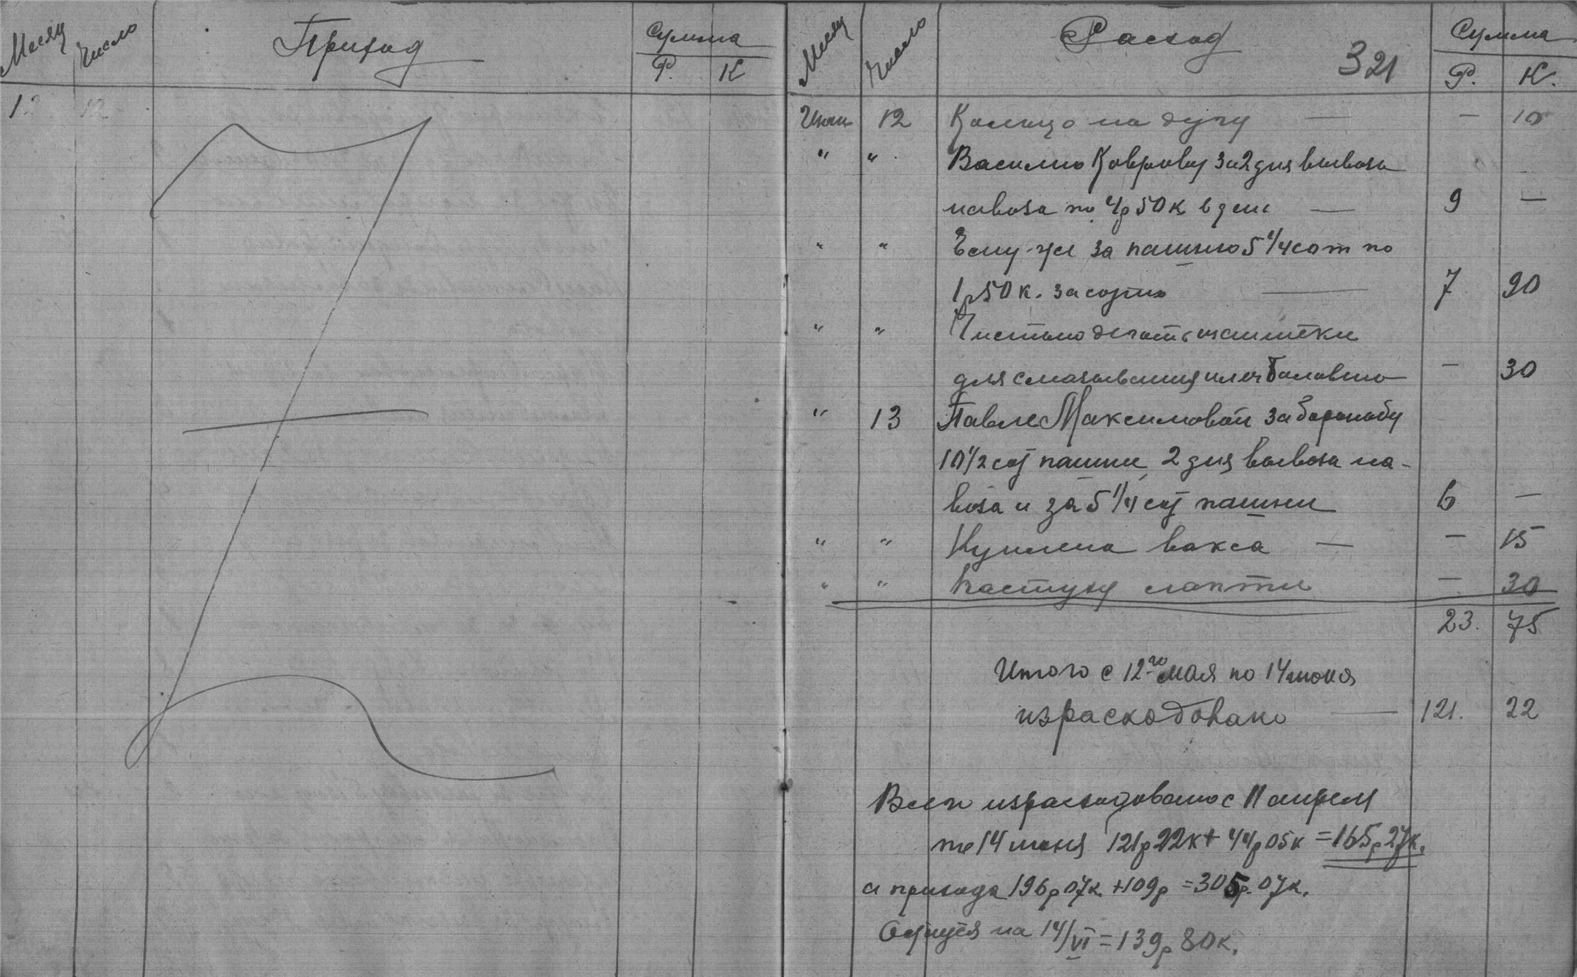 Месяц Число Приход Сумма
Р. К
12 12
Месяц Число Расход 321 Сумма
Р. К.
Июня 12 Кольцо на дугу — — 10
" " Василию Коврову за 2 дня вывоза
навоза по 4р 50к в день — 9 —
" " Ему-же за пашню 5 1/4 сот по
1р 50 к. за сотню — 7 90
" " Чистого дегать
для смазывания — 30
" 13 Павле Максимовой за бороньбу
10 1/2 сот пашни, 2 дня вывоза на-
воза и за 5 1/4 сот пашни 6 —
" " Куплена вакса — — 15
" " Пастуху лапти — 30
23. 75
Итого с 12го мая по 14 июня
израсходовано — 121. 22
Всего израсходовано с 11 апреля
по 14 июня 121р 22к + 44р 05к = 165р 27к.
а прихода 196р 07к. + 109р = 305р. 07к.
Остаётся на 14/VI = 139р 80к.